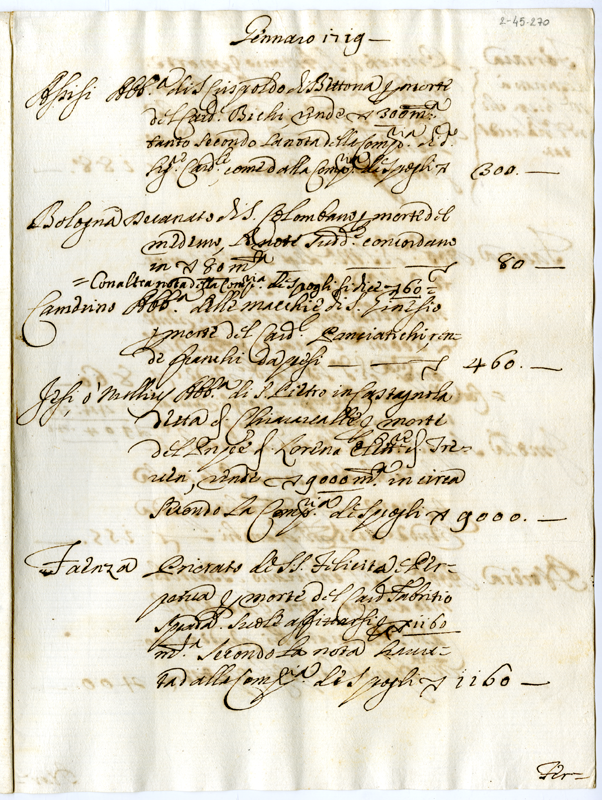 2-45-270
Gennaro 1719 —
Assisi Abb.a di S. Crispoldo di Bettona p morte
del Card. Bichi rende ∇ 300 m.ta
tanto secondo la nota della Comp.ria e d.
Sig.e Card.le come dalla Comp.ria de Spogli ∇ 300. —
Bologna Decanato di S. Colombano, p morte del
medemo, le note sudd.e concordano
in ∇ 80 m.ta ∇ 80 —
= Con altra nota della Comp.ria di Spogli si dice ∇ 160 =
Camerino Abb.a delle Macchie di S. Ginesio
p morte del Card. Panciatichi ren-
de franchi da pesi — ∇ 460. —
Jesi, ò Nullius Abb.a di S. Pietro in Castagnola
detta di Chiaravalle p morte
del Prnpe di Lorena Elett.re di Tre-
veri, rende ∇ 9000 m.ta in circa
secondo la Comp.ria de Spogli ∇ 9000. —
Faenza Priorato de SS. Felicita e Per-
petua p morte del Card. Fabritio
Spada. Suole affittarsi ∇ 1160
m.ta secondo la nota havu-
ta dalla Comp.ria de Spogli ∇ 1160 —
Fer-